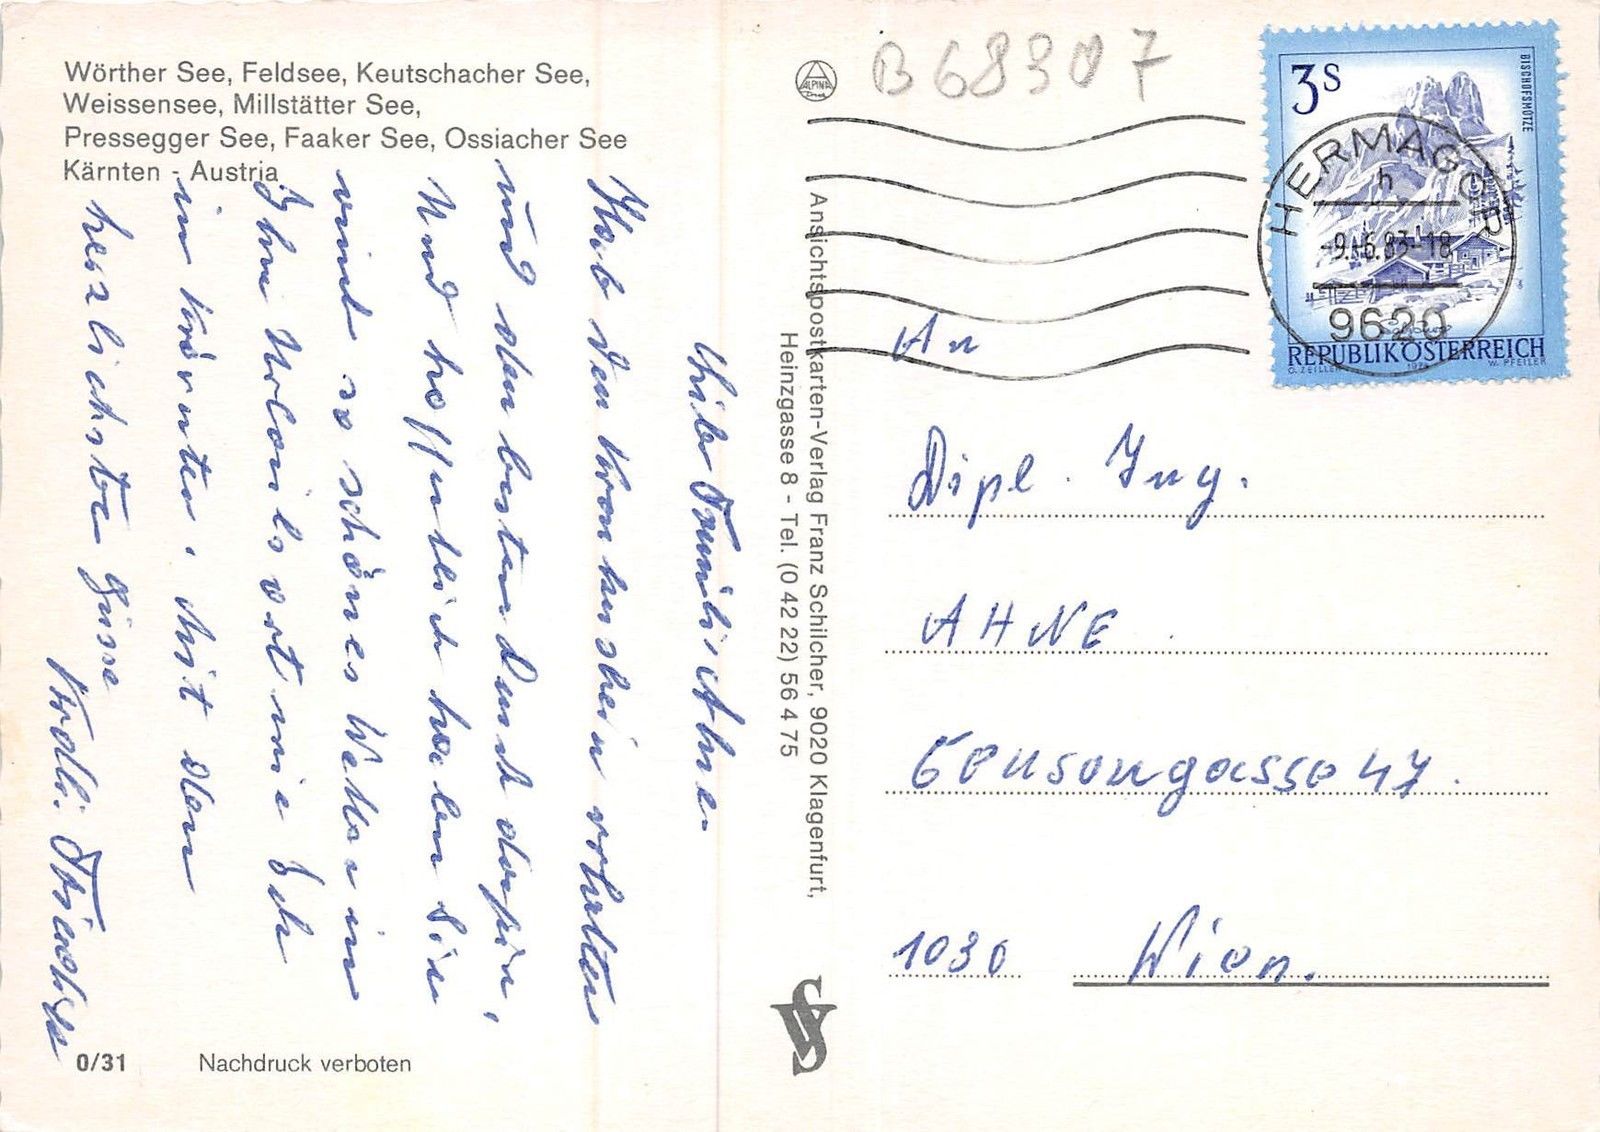 Wörther See, Feldsee, Keutschacher See,
Weissensee, Millstätter See,
Pressegger See, Faaker See, Ossiacher See
Kärnten - Austria
Familie Ahne.
Hab den Krankenschein erhalten
und den besten Dank dafür,
Und hoffentlich haben Sie
so schönes Wetter im
Urlaubsort wie Ich
in Kärnten. Mit den
herzlichsten Grüsse
0/31
Nachdruck verboten
ALPINA
Druck
Ansichtspostkarten-Verlag Franz Schilcher, 9020 Klagenfurt,
Heinzgasse 8 - Tel. (0 42 22) 56 4 75
SV
B 68307
3S
BISCHOFSMÜTZE
HERMAGOR
h
-9.-6.83-18
9620
REPUBLIK ÖSTERREICH
O. ZEILLER 1974 W. PFEILER
An
Dipl. Ing.
AHNE
47.
1030 Wien.